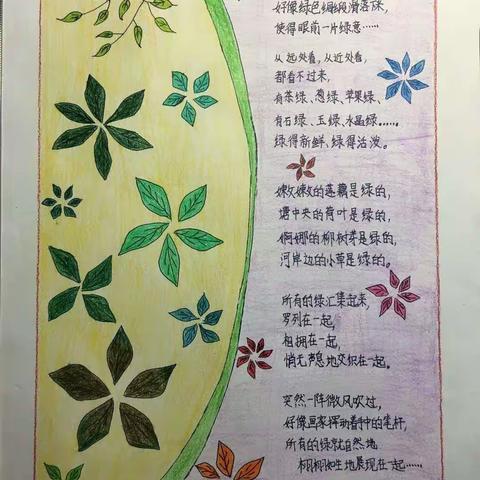 好像绿色绸缎滑落床,
使得眼前一片绿意……
从远处看,从近处看,
都看不过来,
有茶绿、葱绿、苹果绿、
有石绿、玉绿、水晶绿……
绿得新鲜、绿得活泼。
嫩嫩嫩的莲藕是绿的,
塘中央的荷叶是绿的,
婀娜的柳树芽是绿的,
河岸边的小草是绿的。
所有的绿汇集起来,
罗列在一起,
相拥在一起,
悄无声息地交织在一起。
突然一阵微风吹过,
好像画家挥动着手中的笔杆,
所有的绿就自然地
栩栩如生地展现在一起……